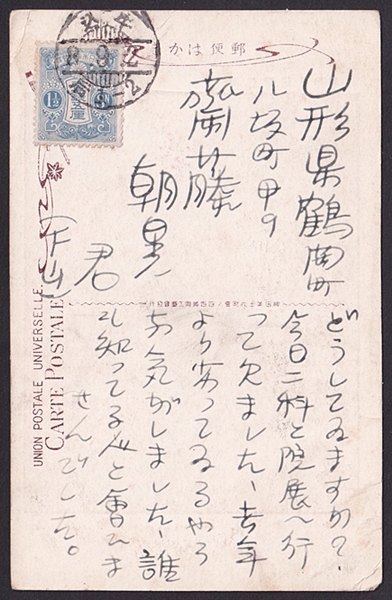 郵便はかき
山形県鶴岡町
八坂町甲9
齋藤
朝晃
君
下山
どうしてゐますか?、
今日二科と院展へ行
って来ました、去年
より劣ってゐるやう
な気がしました、誰
れ知ってる人と會ひま
せんでした。
UNION POSTALE UNIVERSELLE.
CARTE POSTALE